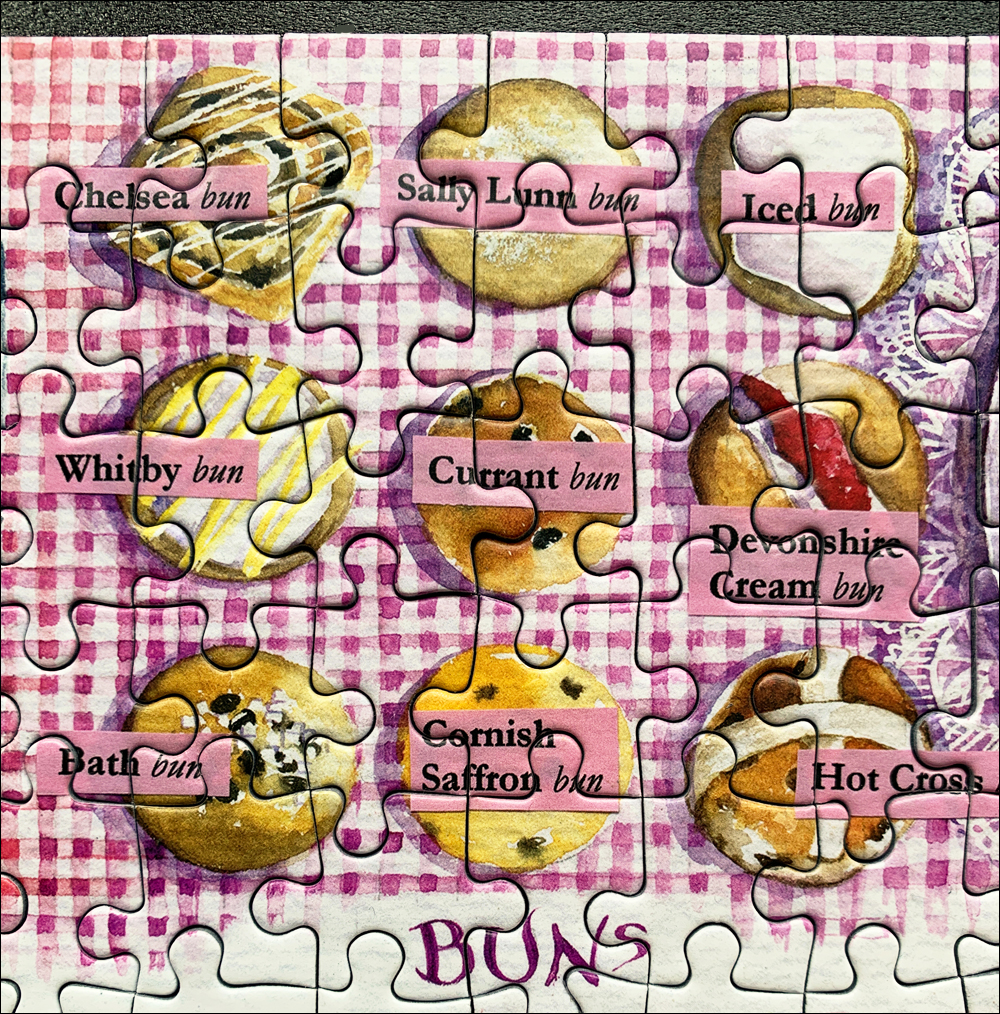 Chelsea bun
Sally Lunn bun
Iced bun
Whitby bun
Currant bun
Devonshire
Cream bun
Bath bun
Cornish
Saffron bun
Hot Cross
BUNS